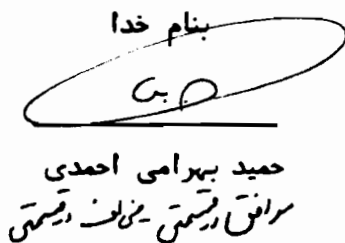 بنام خدا
حمید بهرامی احمدی
موافق در قسمتی - مخالف در قسمتی